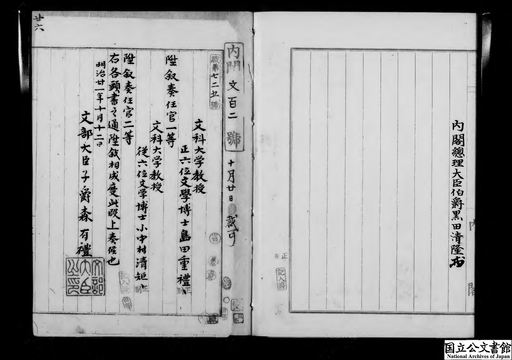 内閣総理大臣伯爵黒田清隆
内閣 文百二 號 十月廿日 裁可
文科大学教授
正六位文學博士島田重禮
陞叙奏任官一等
文科大学教授
従六位文学博士小中村清矩
陞叙奏任官二等
右各頭書之通陞叙相成度此段上奏候也
明治廿一年十月十二日
文部大臣子爵森有禮
廿六
国立公文書館
National Archives of Japan